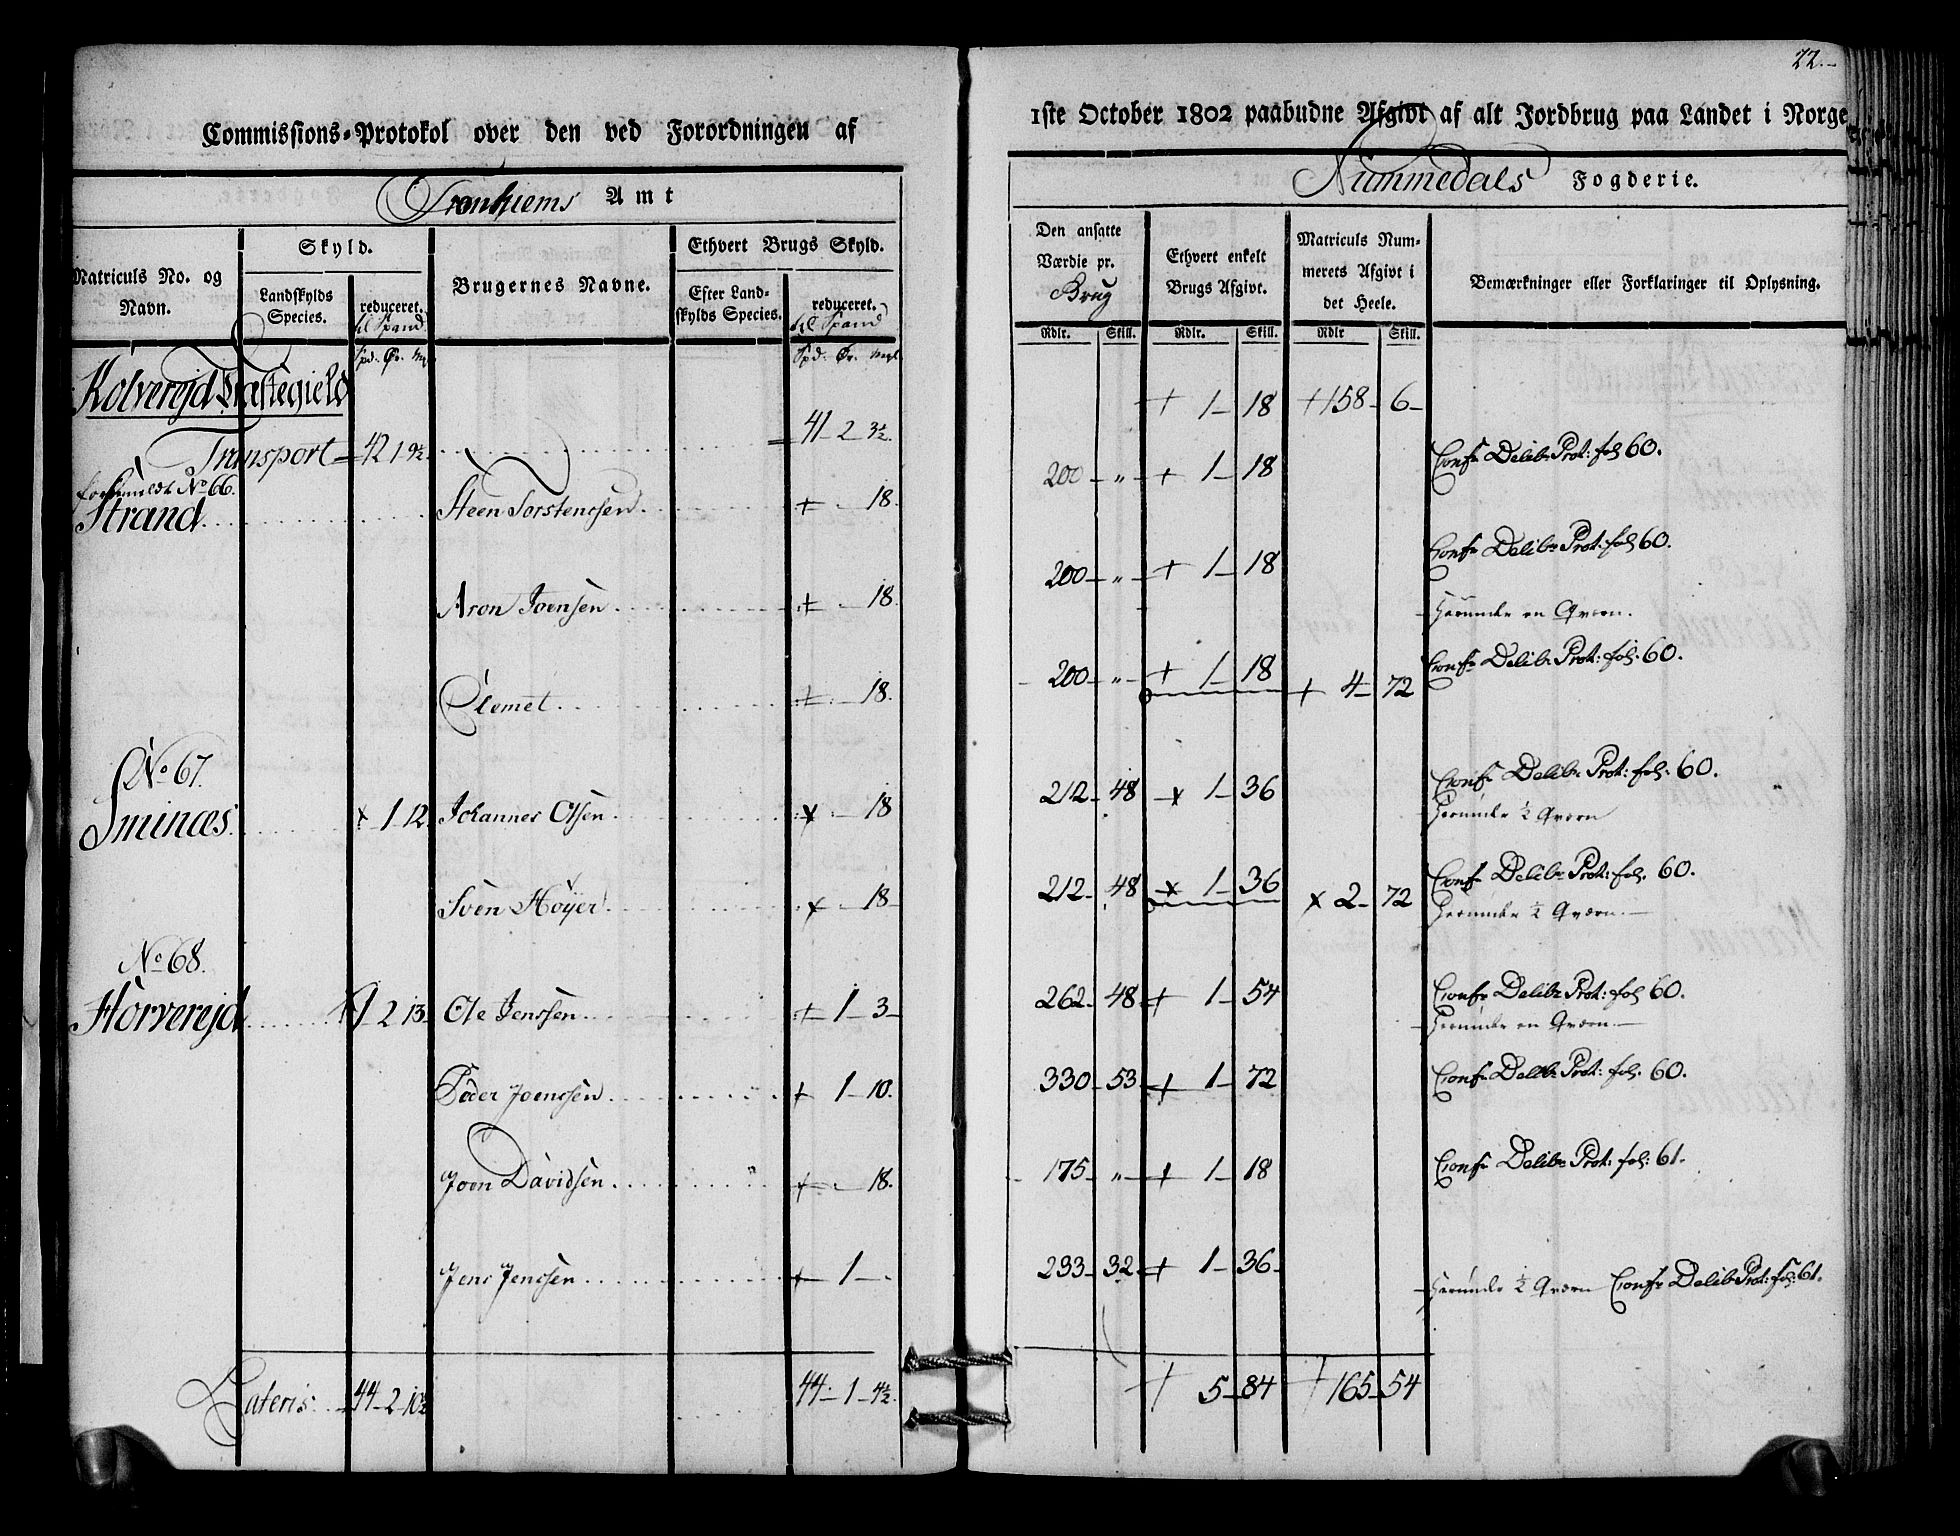 22.
Commissions-Protokol over den ved Forordningen af
1ste October 1802 paabudne Afgivt af alt Jordbrug paa Landet i Norge
Tronhiems Amt
Nummedals Fogderie.
Matriculs No. og Navn.
Skyld.
Landskylds Species.
reduceret. til Spand
Brugernes Navne.
Ethvert Brugs Skyld.
Efter Landskylds Species.
reduceret. til Spand
Den ansatte Værdie pr. Brug
Ethvert enkelt Brugs Afgivt.
Matriculs Nummerets Afgivt i det Heele.
Bemærkninger eller Forklaringer til Oplysning.
Rdlr. Skill. Rdlr. Skill. Rdlr Skill.
Spd. Ør. Mgl Spd. Ør. Mgl
Kolverejd Præstegield
Transport 42 1 9½ 41 2 3½ + 1 18 + 158 6
forhen meldt No 66.
Strand Steen Torstenssen + 18. 200 " + 1 18 Confr Delib: Prot: fol 60.
Aron Joensen + 18. 200 " + 1 18 Confr Delib: Prot: fol 60.
Herunder en Qværn.
Clemet + 18. 200 " + 1 18 + 4 72 Confr Delib: Prot: fol. 60.
No 67.
Sminæs. x 1 12. Johannes Olsen x 18 212 48 x 1 36 Confr Delib: Prot: fol. 60.
Herunder ½ Qværn
Sven Høyer x 18 212 48 x 1 36 x 2 72 Confr Delib: Prot: fol. 60.
Herunder ½ Qværn.
No 68.
Horverejd 1 2 13 Ole Jenssen + 1 3 262 48 + 1 54 Confr Delib: Prot: fol 60.
Herunder en Qværn
Peder Joenssen + 1 10. 330 53 + 1 72 Confr Delib: Prot: fol. 60.
Joen Davidsen + 18. 175 " + 1 18 Confr Delib: Prot: fol: 61.
Jens Jenssen + 1 233 32 + 1 36 Herunder ½ Qværn Confr Delib: Prot: fol: 61.
Lateris 44 2 10½ 44 1 4½ + 5 84 + 165 54